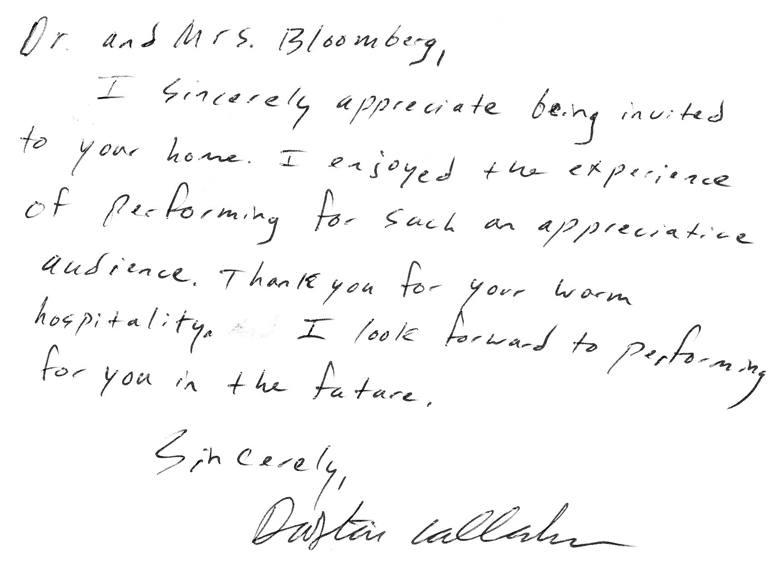 Dr. and Mrs. Bloomberg,
I sincerely appreciate being invited
to your home. I enjoyed the experience
of performing for such an appreciative
audience. Thank you for your warm
hospitality. I look forward to performing
for you in the future.
Sincerely,
Dustin Callahan